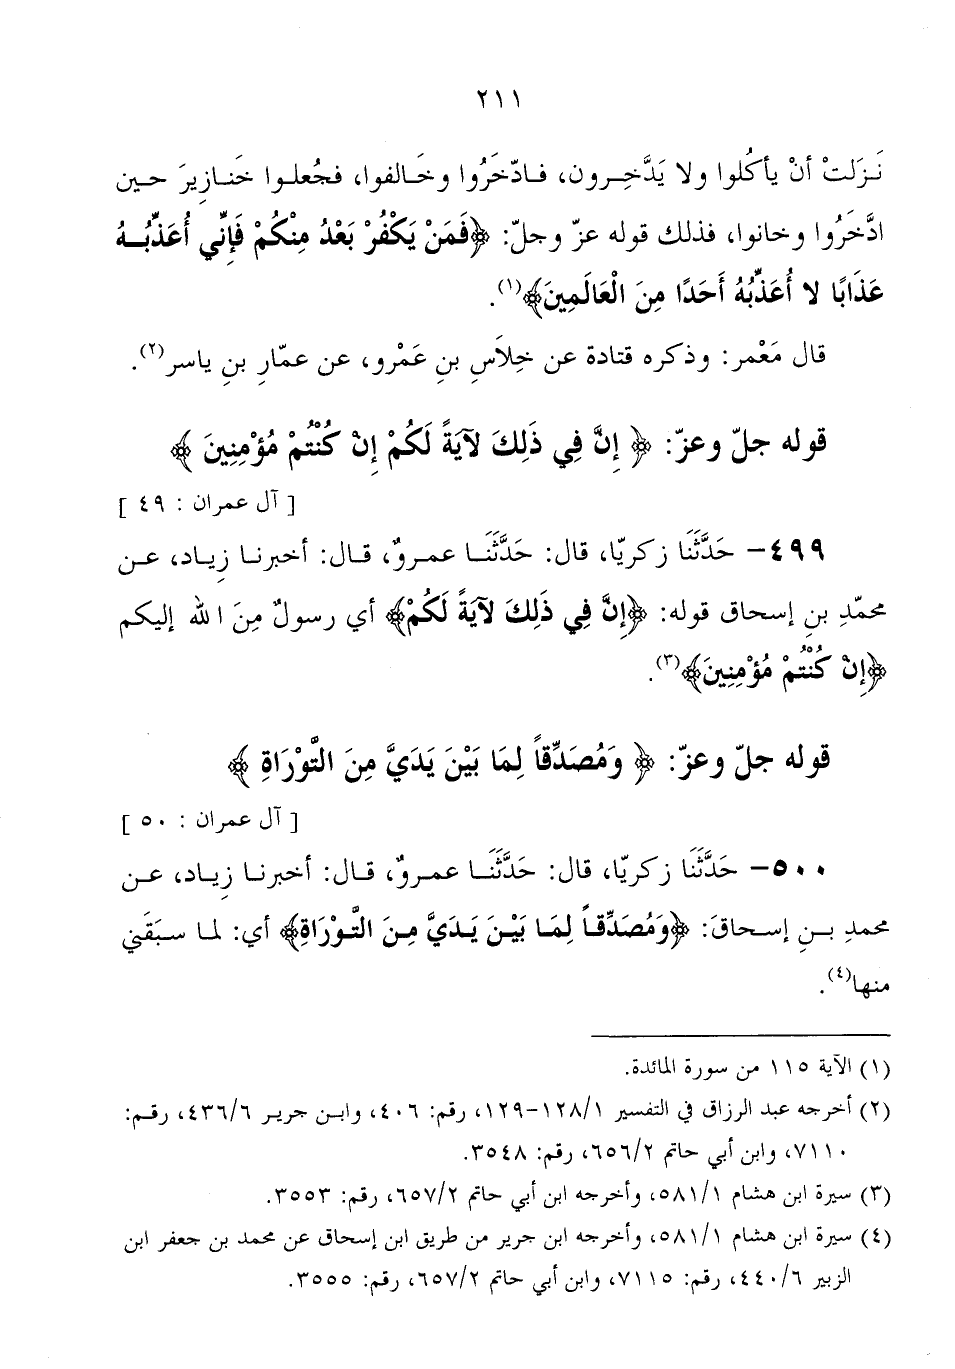 ٢١١
نَزَلَتْ أنْ يأكُلوا ولا يَدَّخِرون، فادّخَرُوا وخَالفوا، فجُعلوا خَنازِيرَ حين
ادَّخَرُوا وخانوا، فذلك قوله عزّ وجلّ: ﴿فَمَنْ يَكْفُرْ بَعْدُ مِنْكُمْ فَإِنِّي أُعَذِّبُهُ
عَذَابًا لا أُعَذِّبُهُ أَحَدًا مِنَ الْعَالَمِينَ﴾(١).
قال مَعْمر: وذكره قتادة عن خِلاَسِ بنِ عَمْرو، عن عمّارِ بنِ ياسر(٢).
قوله جلّ وعزّ: ﴿ إِنَّ فِي ذَلِكَ لآيَةً لَكُمْ إِنْ كُنْتُمْ مُؤْمِنِينَ ﴾
[ آل عمران : ٤٩ ]
٤٩٩– حَدَّثَنَا زكريّا، قال: حَدَّثَنَا عمروٌ، قال: أخبرنا زِياد، عن
محمّدِ بنِ إسحاق قوله: ﴿إِنَّ فِي ذَلِكَ لآيَةً لَكُمْ﴾ أي رسولٌ مِنَ الله إليكم
﴿إِنْ كُنْتُمْ مُؤْمِنِينَ﴾(٣).
قوله جلّ وعزّ: ﴿ وَمُصَدِّقاً لِمَا بَيْنَ يَدَيَّ مِنَ التَّوْرَاةِ ﴾
[ آل عمران : ٥٠ ]
٥٠٠– حَدَّثَنَا زكريّا، قال: حَدَّثَنَا عمروٌ، قال: أخبرنا زِياد، عن
محمدِ بنِ إسحاقَ: ﴿وَمُصَدِّقاً لِمَا بَيْنَ يَدَيَّ مِنَ التَّوْرَاةِ﴾ أي: لما سبَقَني
منها(٤).
(١) الآية ١١٥ من سورة المائدة.
(٢) أخرجه عبد الرزاق في التفسير ١/١٢٨-١٢٩، رقم: ٤٠٦، وابن جرير ٤٣٦/٦، رقم:
٧١١٠، وابن أبي حاتم ٦٥٦/٢، رقم: ٣٥٤٨.
(٣) سيرة ابن هشام ٥٨١/١، وأخرجه ابن أبي حاتم ٦٥٧/٢، رقم: ٣٥٥٣.
(٤) سيرة ابن هشام ٥٨١/١، وأخرجه ابن جرير من طريق ابن إسحاق عن محمد بن جعفر ابن
الزبير ٤٤٠/٦، رقم: ٧١١٥، وابن أبي حاتم ٦٥٧/٢، رقم: ٣٥٥٥.